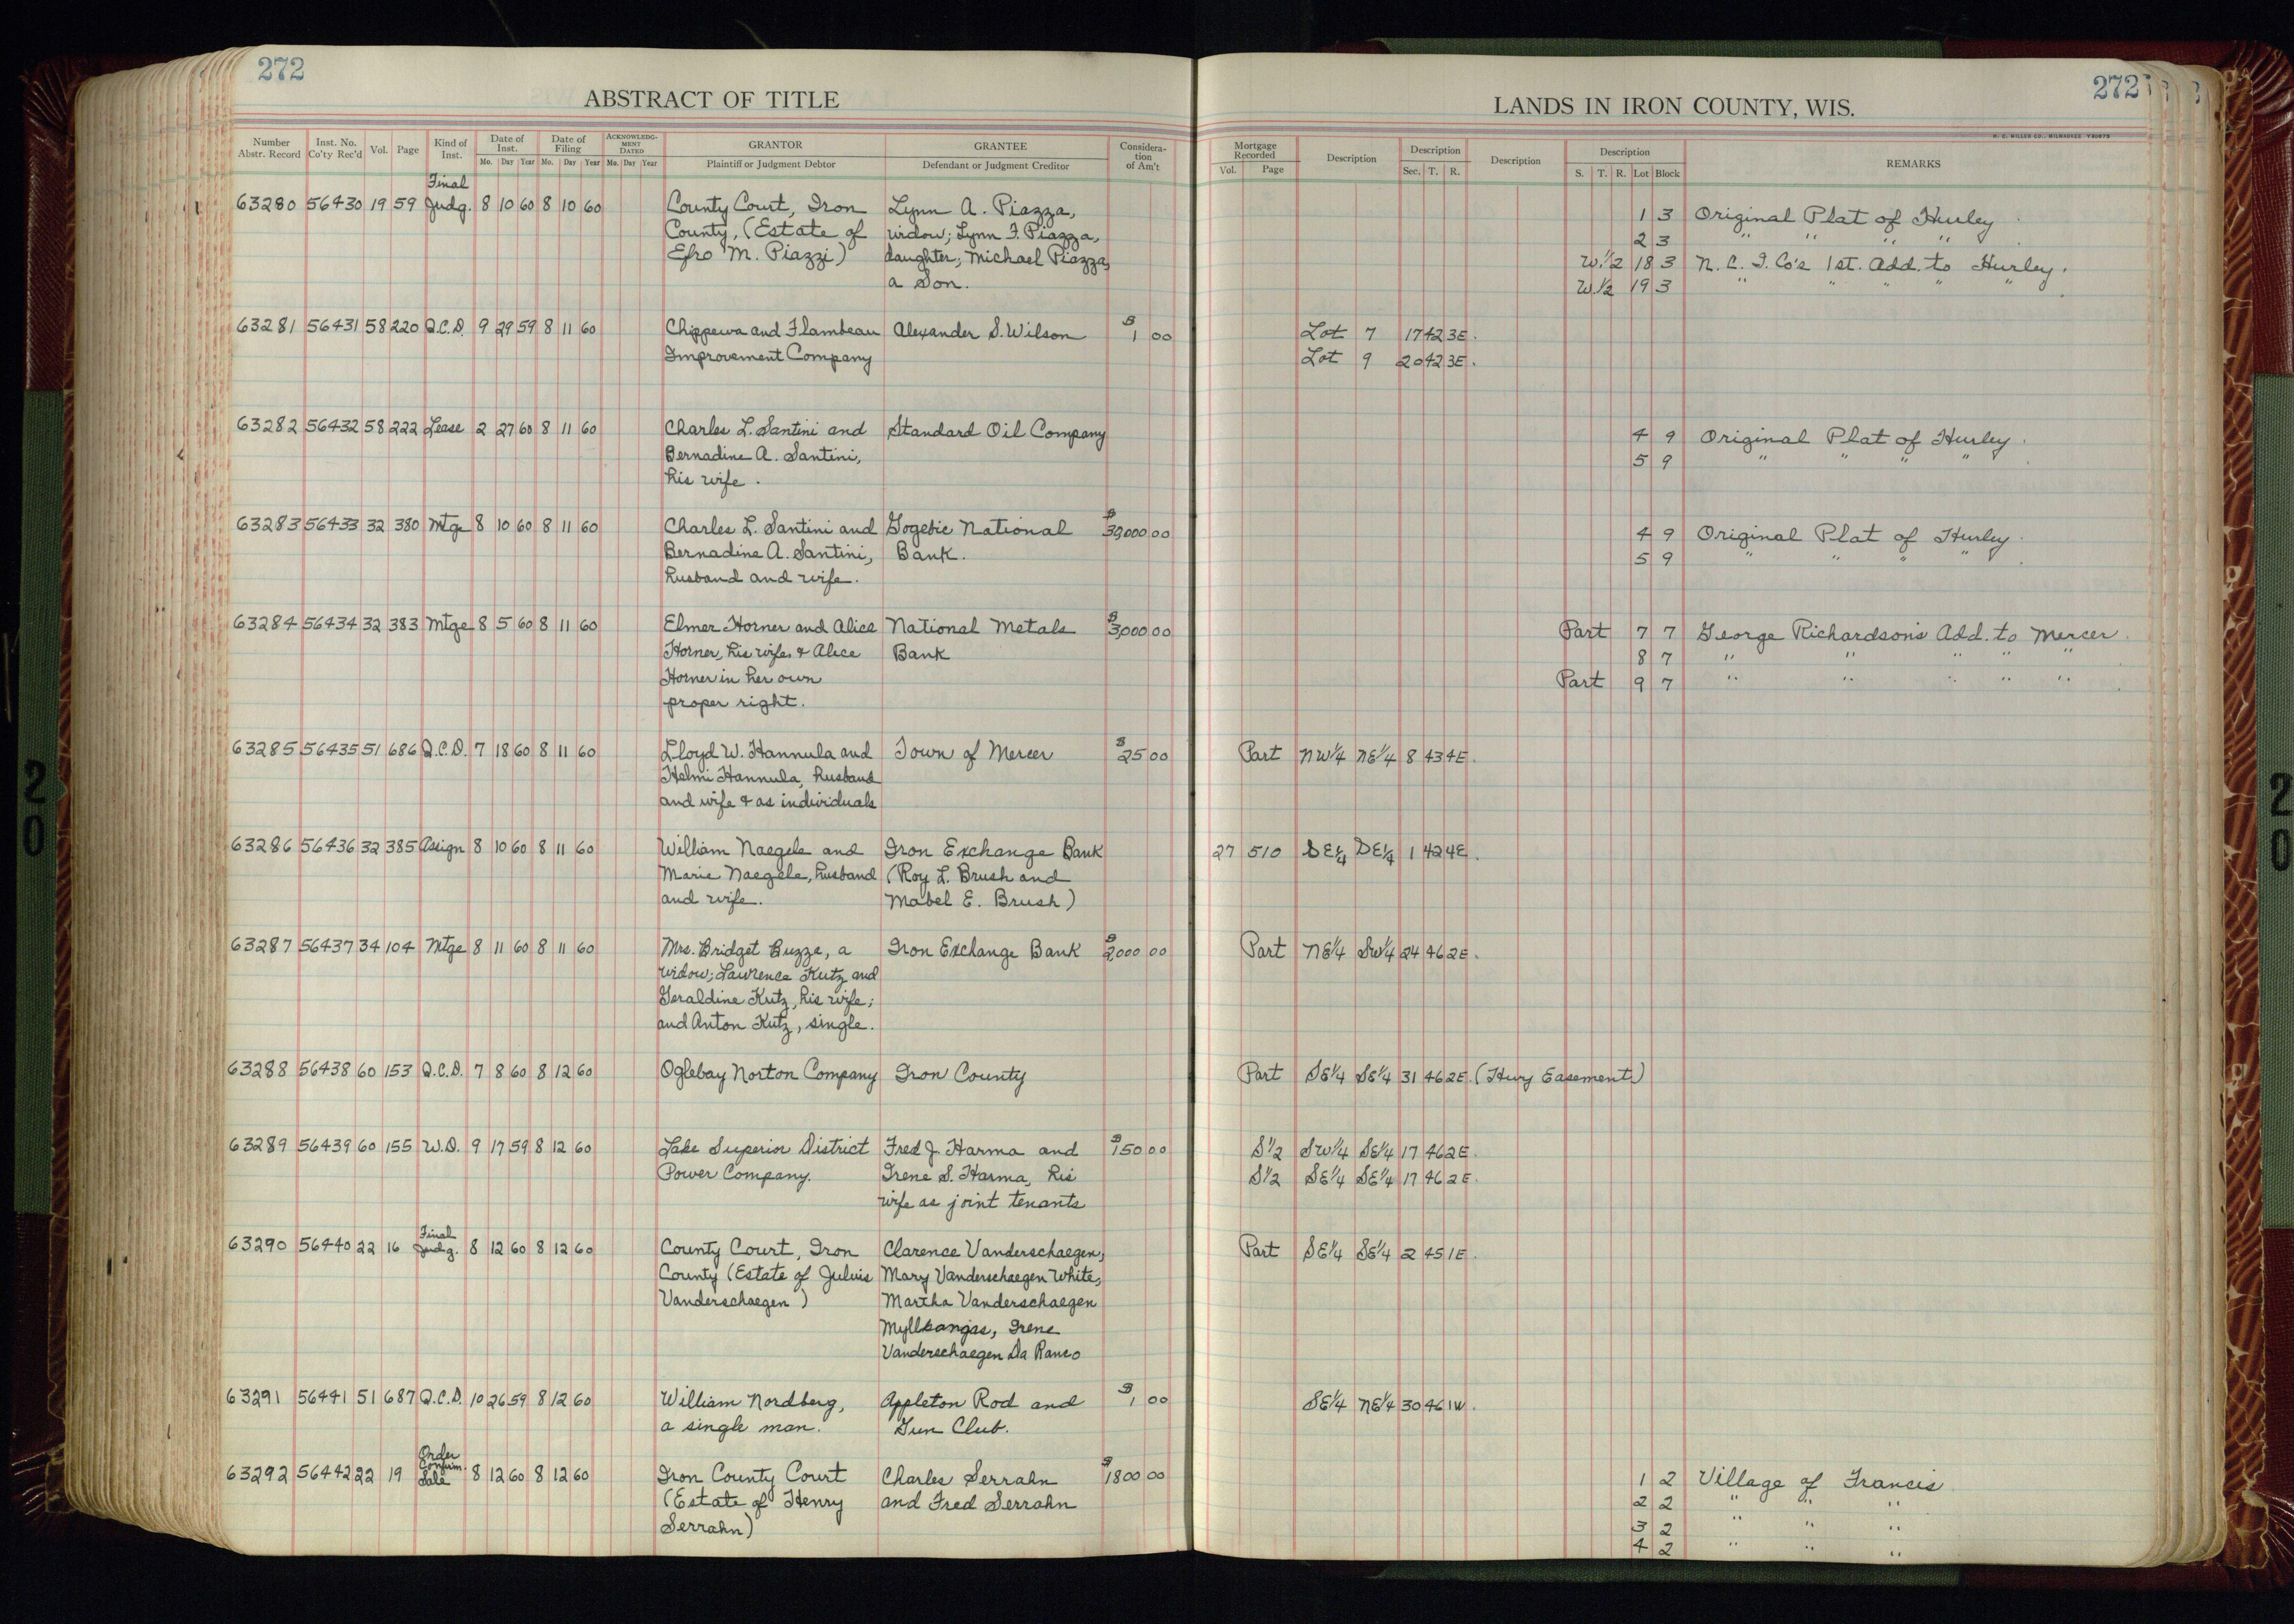 272
ABSTRACT OF TITLE
Number Abstr. Record Inst. No. Co'ty Rec'd Vol. Page Kind of Inst. Date of Inst. Mo. Day Year Date of Filing Mo. Day Year ACKNOWLEDGMENT DATED Mo. Day Year GRANTOR Plaintiff or Judgment Debtor GRANTEE Defendant or Judgment Creditor Consideration of Am't
63280 56430 19 59 Final Judg. 8 10 60 8 10 60 County Court, Iron Lynn A. Piazza,
County, (Estate of widow; Lynn F. Piazza,
Efro M. Piazzi) daughter; Michael Piazza,
a Son.
63281 56431 58 220 Q.C.D. 9 29 59 8 11 60 Chippewa and Flambeau Alexander S. Wilson $1 00
Improvement Company
63282 56432 58 222 Lease 2 27 60 8 11 60 Charles L. Santini and Standard Oil Company
Bernadine A. Santini,
his wife.
63283 56433 32 380 Mtge 8 10 60 8 11 60 Charles L. Santini and Gogebic National $30,000 00
Bernadine A. Santini, Bank.
husband and wife.
63284 56434 32 383 Mtge 8 5 60 8 11 60 Elmer Horner and Alice National Metals $3,000 00
Horner, his wife, & Alice Bank
Horner in her own
proper right.
63285 56435 51 686 Q.C.D. 7 18 60 8 11 60 Lloyd W. Hannula and Town of Mercer $25 00
Helmi Hannula, husband
and wife & as individuals
63286 56436 32 385 Assign 8 10 60 8 11 60 William Naegele and Iron Exchange Bank
Marie Naegele, husband (Roy L. Brush and
and wife. Mabel E. Brush)
63287 56437 34 104 Mtge 8 11 60 8 11 60 Mrs. Bridget Buzze, a Iron Exchange Bank $2,000 00
widow; Lawrence Kutz and
Geraldine Kutz, his wife;
and Anton Kutz, single.
63288 56438 60 153 Q.C.D. 7 8 60 8 12 60 Oglebay Norton Company Iron County
63289 56439 60 155 W.D. 9 17 59 8 12 60 Lake Superior District Fred J. Harma and $150 00
Power Company. Irene S. Harma, his
wife as joint tenants
63290 56440 22 16 Final Judg. 8 12 60 8 12 60 County Court, Iron Clarence Vanderschaegen,
County (Estate of Juluis Mary Vanderschaegen White,
Vanderschaegen) Martha Vanderschaegen
Myllkangas, Irene
Vanderschaegen Da Ranco
63291 56441 51 687 Q.C.D. 10 26 59 8 12 60 William Nordberg, Appleton Rod and $1 00
a single man. Gun Club.
63292 56442 22 19 Order Confirm. Sale 8 12 60 8 12 60 Iron County Court Charles Serrahn $1800 00
(Estate of Henry and Fred Serrahn
Serrahn)
272
LANDS IN IRON COUNTY, WIS.
H. C. MILLER CO., MILWAUKEE
Mortgage Recorded Vol. Page Description Description Sec. T. R. Description Description S. T. R. Lot Block REMARKS
1 3 Original Plat of Hurley
2 3 " " " "
W.1/2 18 3 N.C.I. Co's 1st. Add. to Hurley.
W.1/2 19 3 " " " " "
Lot 7 17 42 3E.
Lot 9 20 42 3E.
4 9 Original Plat of Hurley.
5 9 " " " "
4 9 Original Plat of Hurley.
5 9 " " " "
Part 7 7 George Richardson's Add. to Mercer.
8 7 " " " " "
Part 9 7 " " " " "
Part NW1/4 NE1/4 8 43 4E.
27 510 SE1/4 SE1/4 1 42 4E.
Part NE1/4 SW1/4 24 46 2E.
Part SE1/4 SE1/4 31 46 2E. (Hwy Easement)
S1/2 SW1/4 SE1/4 17 46 2E.
S1/2 SE1/4 SE1/4 17 46 2E.
Part SE1/4 SE1/4 2 45 1E.
SE1/4 NE1/4 30 46 1W.
1 2 Village of Francis
2 2 " " "
3 2 " " "
4 2 " " "
20
20